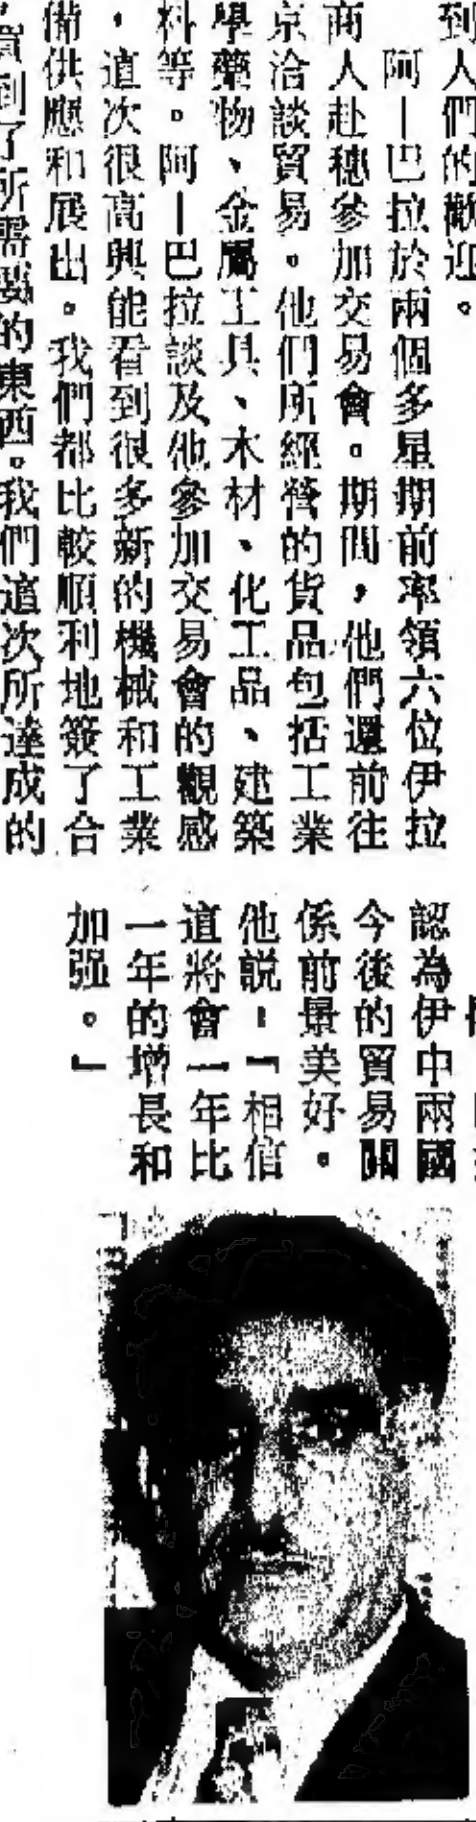 到人們的歡迎。
阿—巴拉於兩個多星期前率領六位伊拉
商人赴穗參加交易會。期間，他們還前往
京洽談貿易。他們所經營的貨品包括工業
學藥物、金屬工具、木材、化工品、建築
料等。阿—巴拉談及他參加交易會的觀感
，這次很高興能看到很多新的機械和工業
備供應和展出。我們都比較順利地簽了合
買到了所需要的東西。我們這次所達成的
認為伊中兩國
今後的貿易關
係前景美好。
他説：「相信
這將會一年比
一年的增長和
加强。」